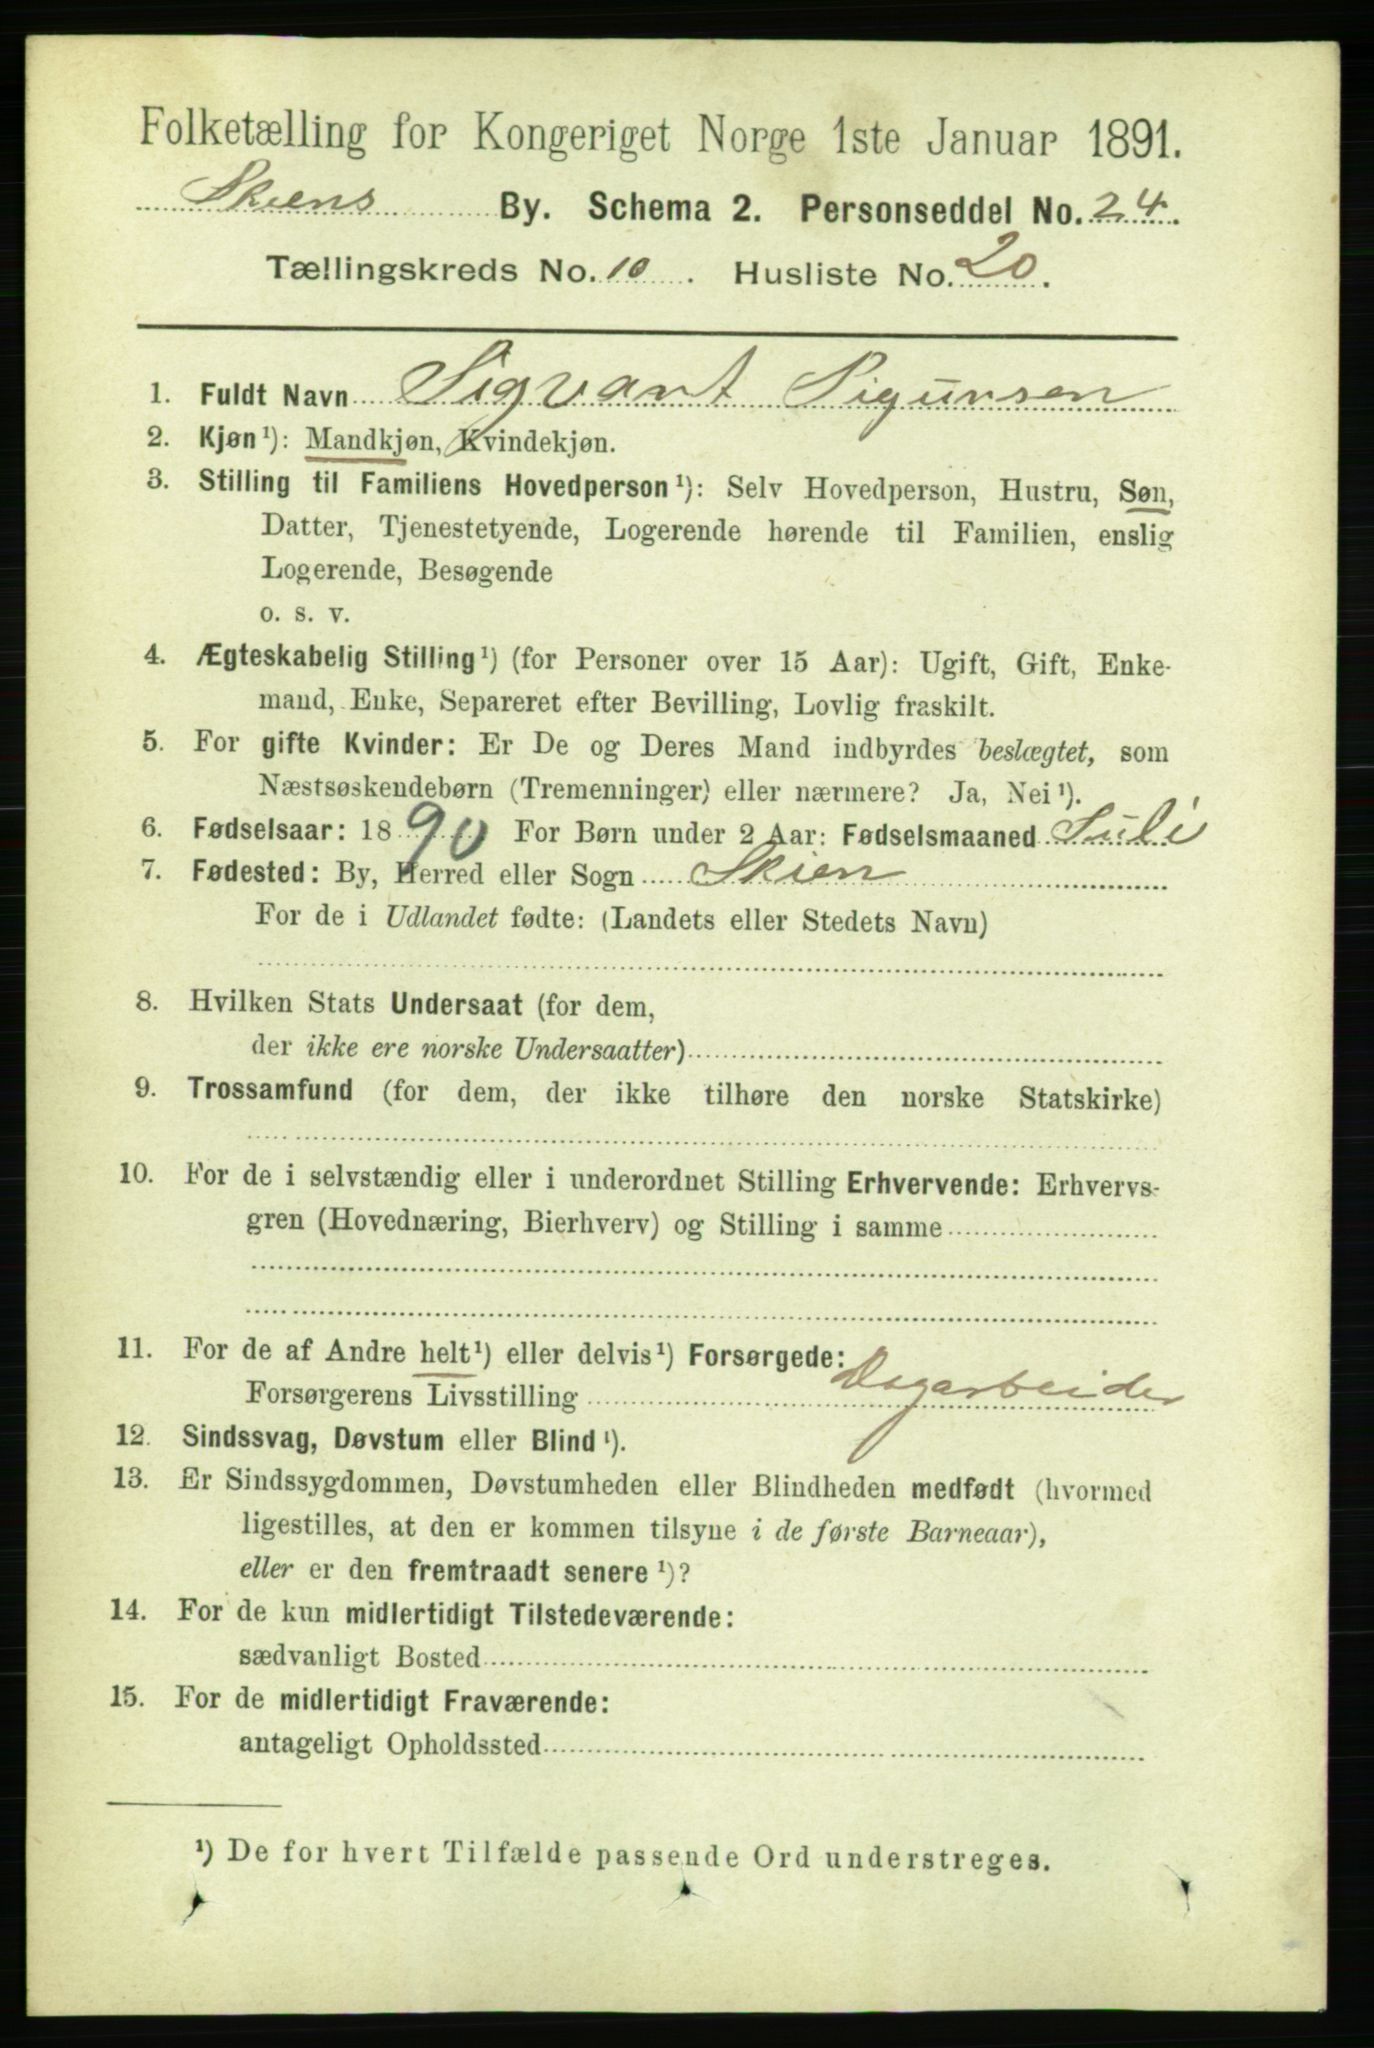 Folketælling for Kongeriget Norge 1ste Januar 1891.
Skiens By. Schema 2. Personseddel No. 24.
Tællingskreds No. 10. Husliste No. 20.
1. Fuldt Navn Sigvart Sigursen
2. Kjøn¹): Mandkjøn, Kvindekjøn.
3. Stilling til Familiens Hovedperson¹): Selv Hovedperson, Hustru, Søn,
Datter, Tjenestetyende, Logerende hørende til Familien, enslig
Logerende, Besøgende
o. s. v.
4. Ægteskabelig Stilling¹) (for Personer over 15 Aar): Ugift, Gift, Enke-
mand, Enke, Separeret efter Bevilling, Lovlig fraskilt.
5. For gifte Kvinder: Er De og Deres Mand indbyrdes beslægtet, som
Næstsøskendebørn (Tremenninger) eller nærmere? Ja, Nei¹).
6. Fødselsaar: 1890 For Børn under 2 Aar: Fødselsmaaned Juli
7. Fødested: By, Herred eller Sogn Skien
For de i Udlandet fødte: (Landets eller Stedets Navn)
8. Hvilken Stats Undersaat (for dem,
der ikke ere norske Undersaatter)
9. Trossamfund (for dem, der ikke tilhøre den norske Statskirke)
10. For de i selvstændig eller i underordnet Stilling Erhvervende: Erhvervs-
gren (Hovednæring, Bierhverv) og Stilling i samme
11. For de af Andre helt¹) eller delvis¹) Forsørgede:
Forsørgerens Livsstilling Dagarbeider
12. Sindssvag, Døvstum eller Blind¹).
13. Er Sindssygdommen, Døvstumheden eller Blindheden medfødt (hvormed
ligestilles, at den er kommen tilsyne i de første Barneaar),
eller er den fremtraadt senere¹)?
14. For de kun midlertidigt Tilstedeværende:
sædvanligt Bosted
15. For de midlertidigt Fraværende:
antageligt Opholdssted
¹) De for hvert Tilfælde passende Ord understreges.